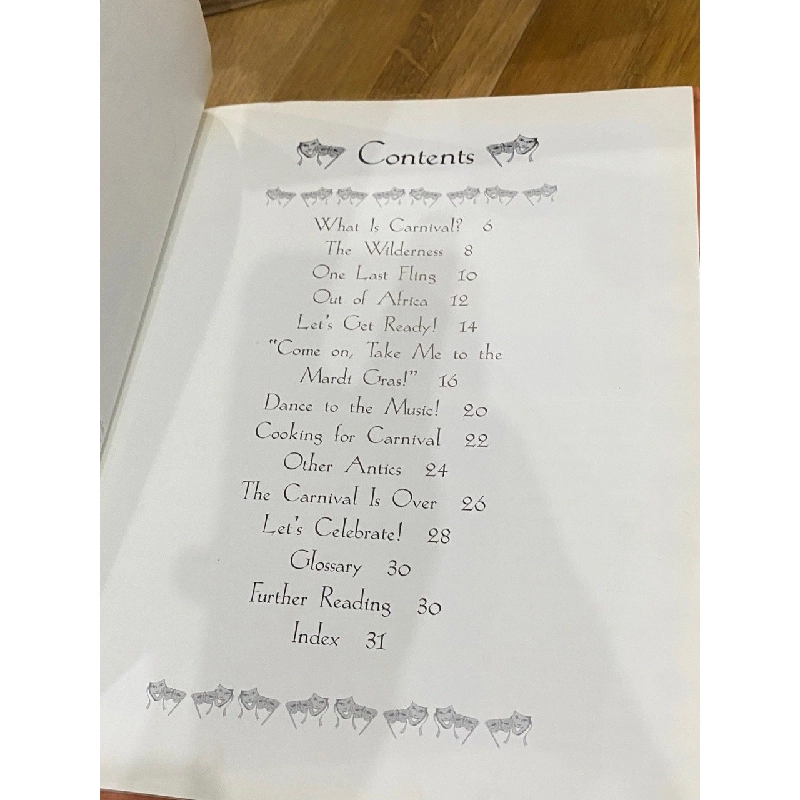 Contents
What Is Carnival? 6
The Wilderness 8
One Last Fling 10
Out of Africa 12
Let's Get Ready! 14
"Come on, Take Me to the
Mardi Gras!" 16
Dance to the Music! 20
Cooking for Carnival 22
Other Antics 24
The Carnival Is Over 26
Let's Celebrate! 28
Glossary 30
Further Reading 30
Index 31